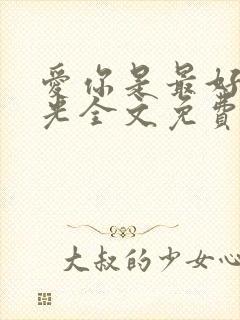 愛你是最好
光全文免費
大叔的少女心